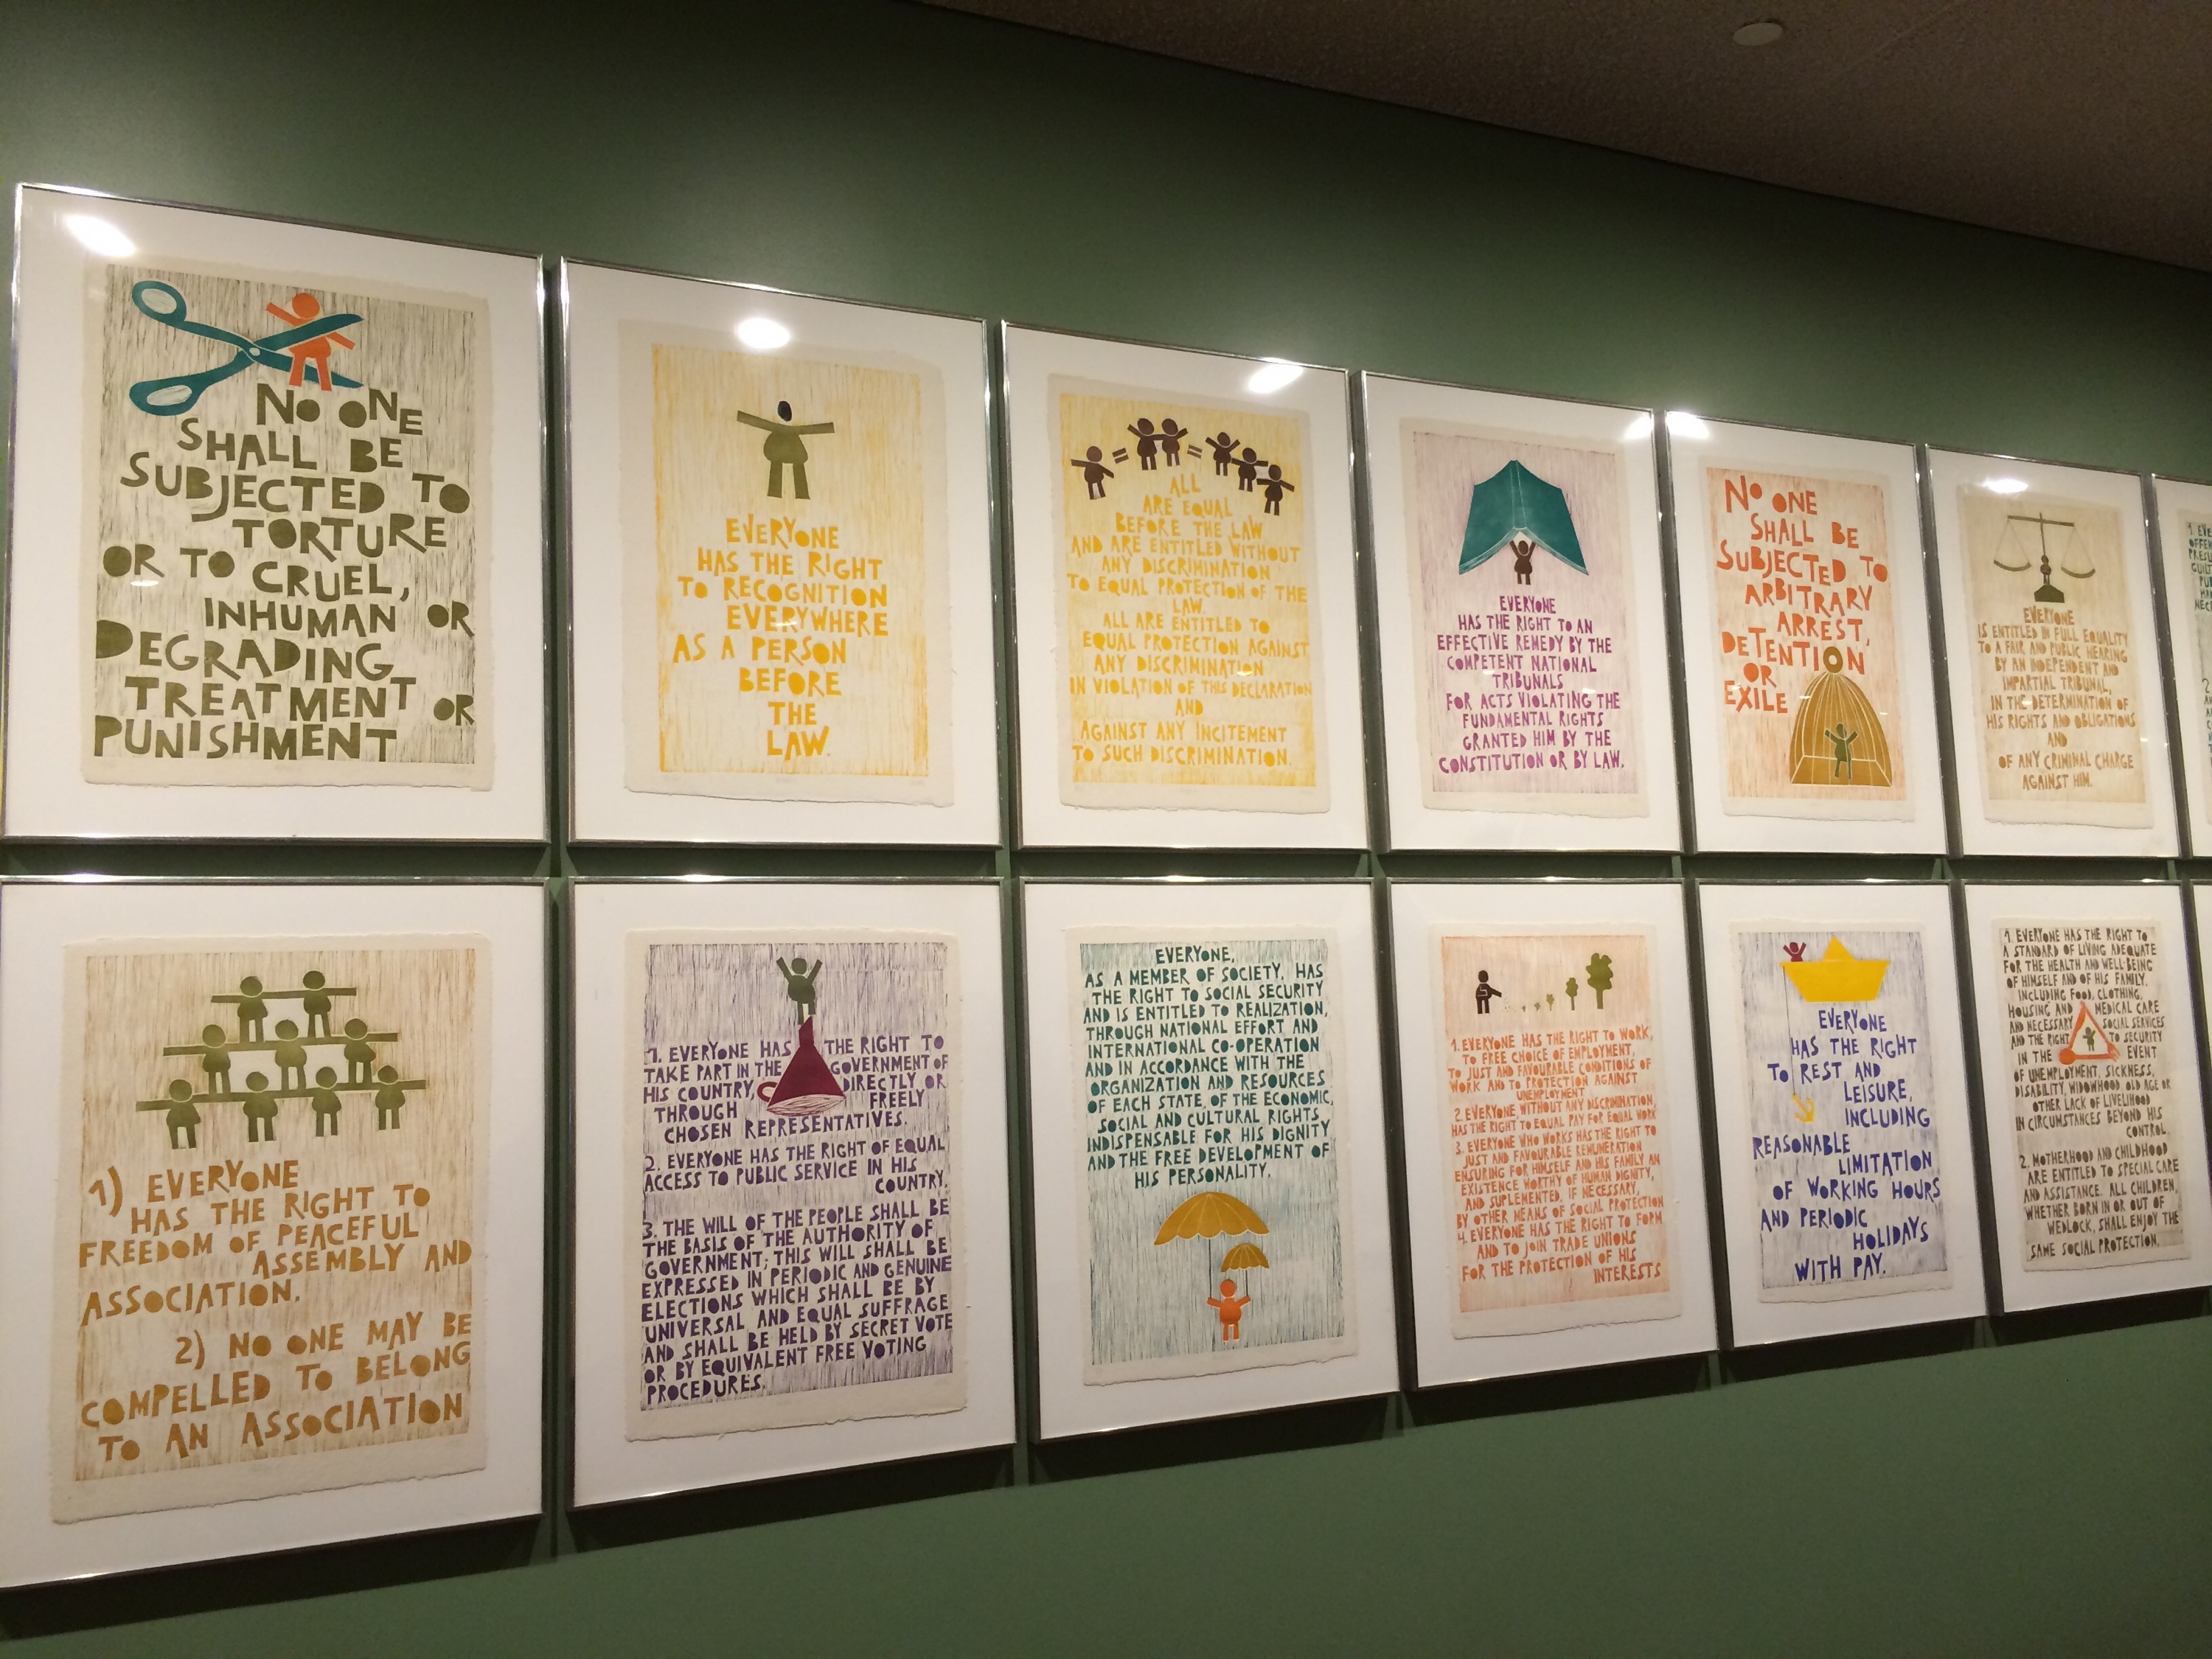 NO ONE
SHALL BE
SUBJECTED TO
TORTURE
OR TO CRUEL,
INHUMAN OR
DEGRADING
TREATMENT OR
PUNISHMENT
EVERYONE
HAS THE RIGHT
TO RECOGNITION
EVERYWHERE
AS A PERSON
BEFORE
THE
LAW.
ALL
ARE EQUAL
BEFORE THE LAW
AND ARE ENTITLED WITHOUT
ANY DISCRIMINATION
TO EQUAL PROTECTION OF THE
LAW.
ALL ARE ENTITLED TO
EQUAL PROTECTION AGAINST
ANY DISCRIMINATION
IN VIOLATION OF THIS DECLARATION
AND
AGAINST ANY INCITEMENT
TO SUCH DISCRIMINATION.
EVERYONE
HAS THE RIGHT TO AN
EFFECTIVE REMEDY BY THE
COMPETENT NATIONAL
TRIBUNALS
FOR ACTS VIOLATING THE
FUNDAMENTAL RIGHTS
GRANTED HIM BY THE
CONSTITUTION OR BY LAW.
NO ONE
SHALL BE
SUBJECTED TO
ARBITRARY
ARREST,
DETENTION
OR
EXILE
EVERYONE
IS ENTITLED IN FULL EQUALITY
TO A FAIR AND PUBLIC HEARING
BY AN INDEPENDENT AND
IMPARTIAL TRIBUNAL,
IN THE DETERMINATION OF
HIS RIGHTS AND OBLIGATIONS
AND
OF ANY CRIMINAL CHARGE
AGAINST HIM.
1) EVERYONE
HAS THE RIGHT TO
FREEDOM OF PEACEFUL
ASSEMBLY AND
ASSOCIATION.
2) NO ONE MAY BE
COMPELLED TO BELONG
TO AN ASSOCIATION
1. EVERYONE HAS THE RIGHT TO
TAKE PART IN THE GOVERNMENT OF
HIS COUNTRY, DIRECTLY OR
THROUGH FREELY
CHOSEN REPRESENTATIVES.
2. EVERYONE HAS THE RIGHT OF EQUAL
ACCESS TO PUBLIC SERVICE IN HIS
COUNTRY.
3. THE WILL OF THE PEOPLE SHALL BE
THE BASIS OF THE AUTHORITY OF
GOVERNMENT; THIS WILL SHALL BE
EXPRESSED IN PERIODIC AND GENUINE
ELECTIONS WHICH SHALL BE BY
UNIVERSAL AND EQUAL SUFFRAGE
AND SHALL BE HELD BY SECRET VOTE
OR BY EQUIVALENT FREE VOTING
PROCEDURES.
EVERYONE,
AS A MEMBER OF SOCIETY, HAS
THE RIGHT TO SOCIAL SECURITY
AND IS ENTITLED TO REALIZATION,
THROUGH NATIONAL EFFORT AND
INTERNATIONAL CO-OPERATION
AND IN ACCORDANCE WITH THE
ORGANIZATION AND RESOURCES
OF EACH STATE, OF THE ECONOMIC,
SOCIAL AND CULTURAL RIGHTS
INDISPENSABLE FOR HIS DIGNITY
AND THE FREE DEVELOPMENT OF
HIS PERSONALITY.
1. EVERYONE HAS THE RIGHT TO WORK,
TO FREE CHOICE OF EMPLOYMENT,
TO JUST AND FAVOURABLE CONDITIONS OF
WORK AND TO PROTECTION AGAINST
UNEMPLOYMENT
2. EVERYONE, WITHOUT ANY DISCRIMINATION,
HAS THE RIGHT TO EQUAL PAY FOR EQUAL WORK
3. EVERYONE WHO WORKS HAS THE RIGHT TO
JUST AND FAVOURABLE REMUNERATION
ENSURING FOR HIMSELF AND HIS FAMILY AN
EXISTENCE WORTHY OF HUMAN DIGNITY,
AND SUPLEMENTED, IF NECESSARY,
BY OTHER MEANS OF SOCIAL PROTECTION
4. EVERYONE HAS THE RIGHT TO FORM
AND TO JOIN TRADE UNIONS
FOR THE PROTECTION OF HIS
INTERESTS
EVERYONE
HAS THE RIGHT
TO REST AND
LEISURE,
INCLUDING
REASONABLE
LIMITATION
OF WORKING HOURS
AND PERIODIC
HOLIDAYS
WITH PAY.
1. EVERYONE HAS THE RIGHT TO
A STANDARD OF LIVING ADEQUATE
FOR THE HEALTH AND WELL-BEING
OF HIMSELF AND OF HIS FAMILY,
INCLUDING FOOD, CLOTHING,
HOUSING AND MEDICAL CARE
AND NECESSARY SOCIAL SERVICES
AND THE RIGHT TO SECURITY
IN THE EVENT
OF UNEMPLOYMENT, SICKNESS,
DISABILITY, WIDOWHOOD OLD AGE OR
OTHER LACK OF LIVELIHOOD
IN CIRCUMSTANCES BEYOND HIS
CONTROL.
2. MOTHERHOOD AND CHILDHOOD
ARE ENTITLED TO SPECIAL CARE
AND ASSISTANCE. ALL CHILDREN,
WHETHER BORN IN OR OUT OF
WEDLOCK, SHALL ENJOY THE
SAME SOCIAL PROTECTION.